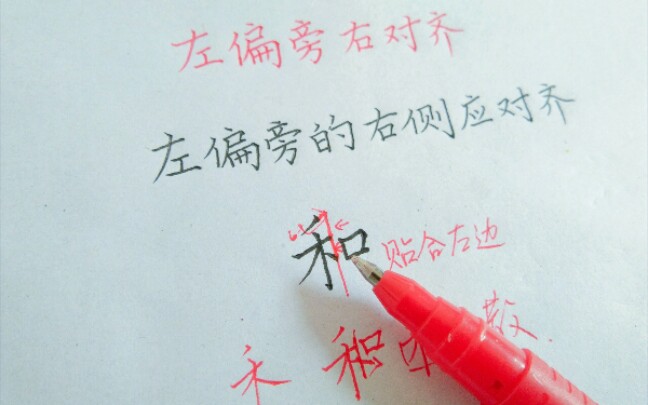 左偏旁右对齐
左偏旁的右侧应对齐
和 贴合左边
禾 和 散